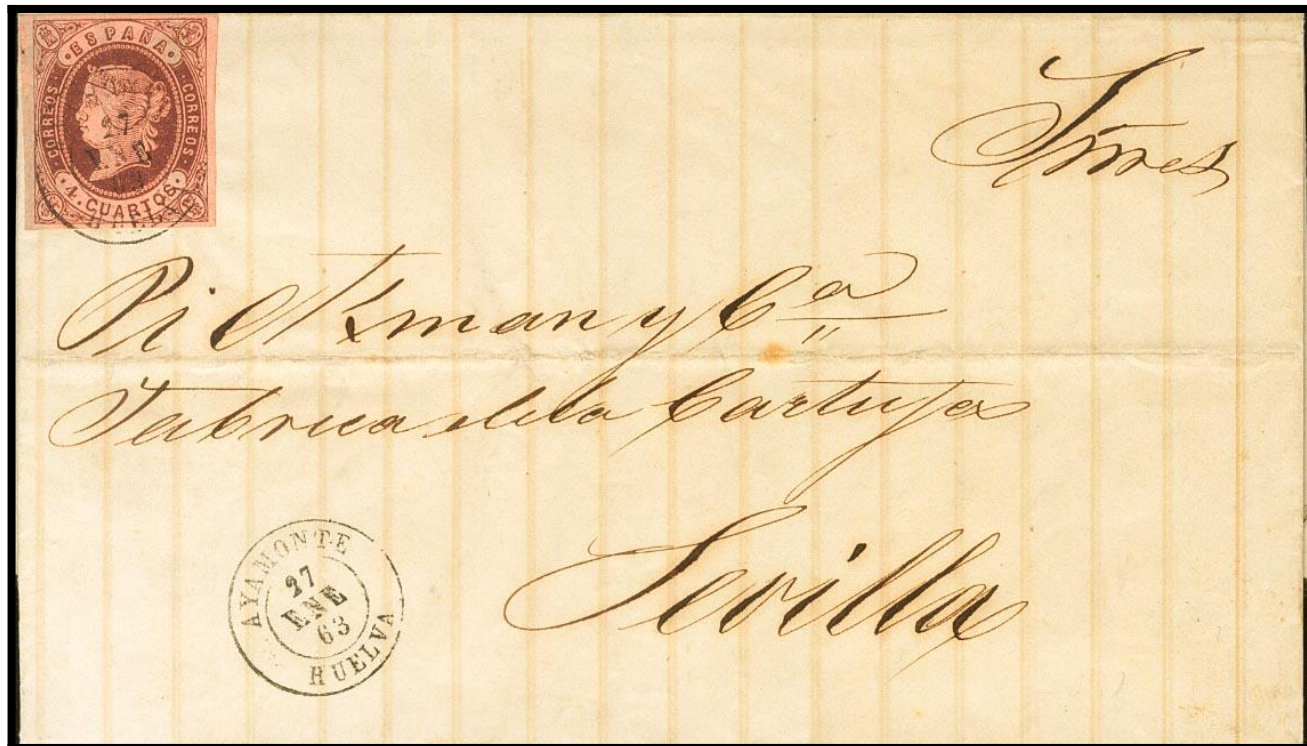 ·ESPAÑA·
·CORREOS·
·CORREOS·
4·CUARTOS·
27
ENE
HUELVA
Sres
Pickman y Cª
Fabrica de la Cartuja
Sevilla
AYAMONTE
27
ENE
63
HUELVA